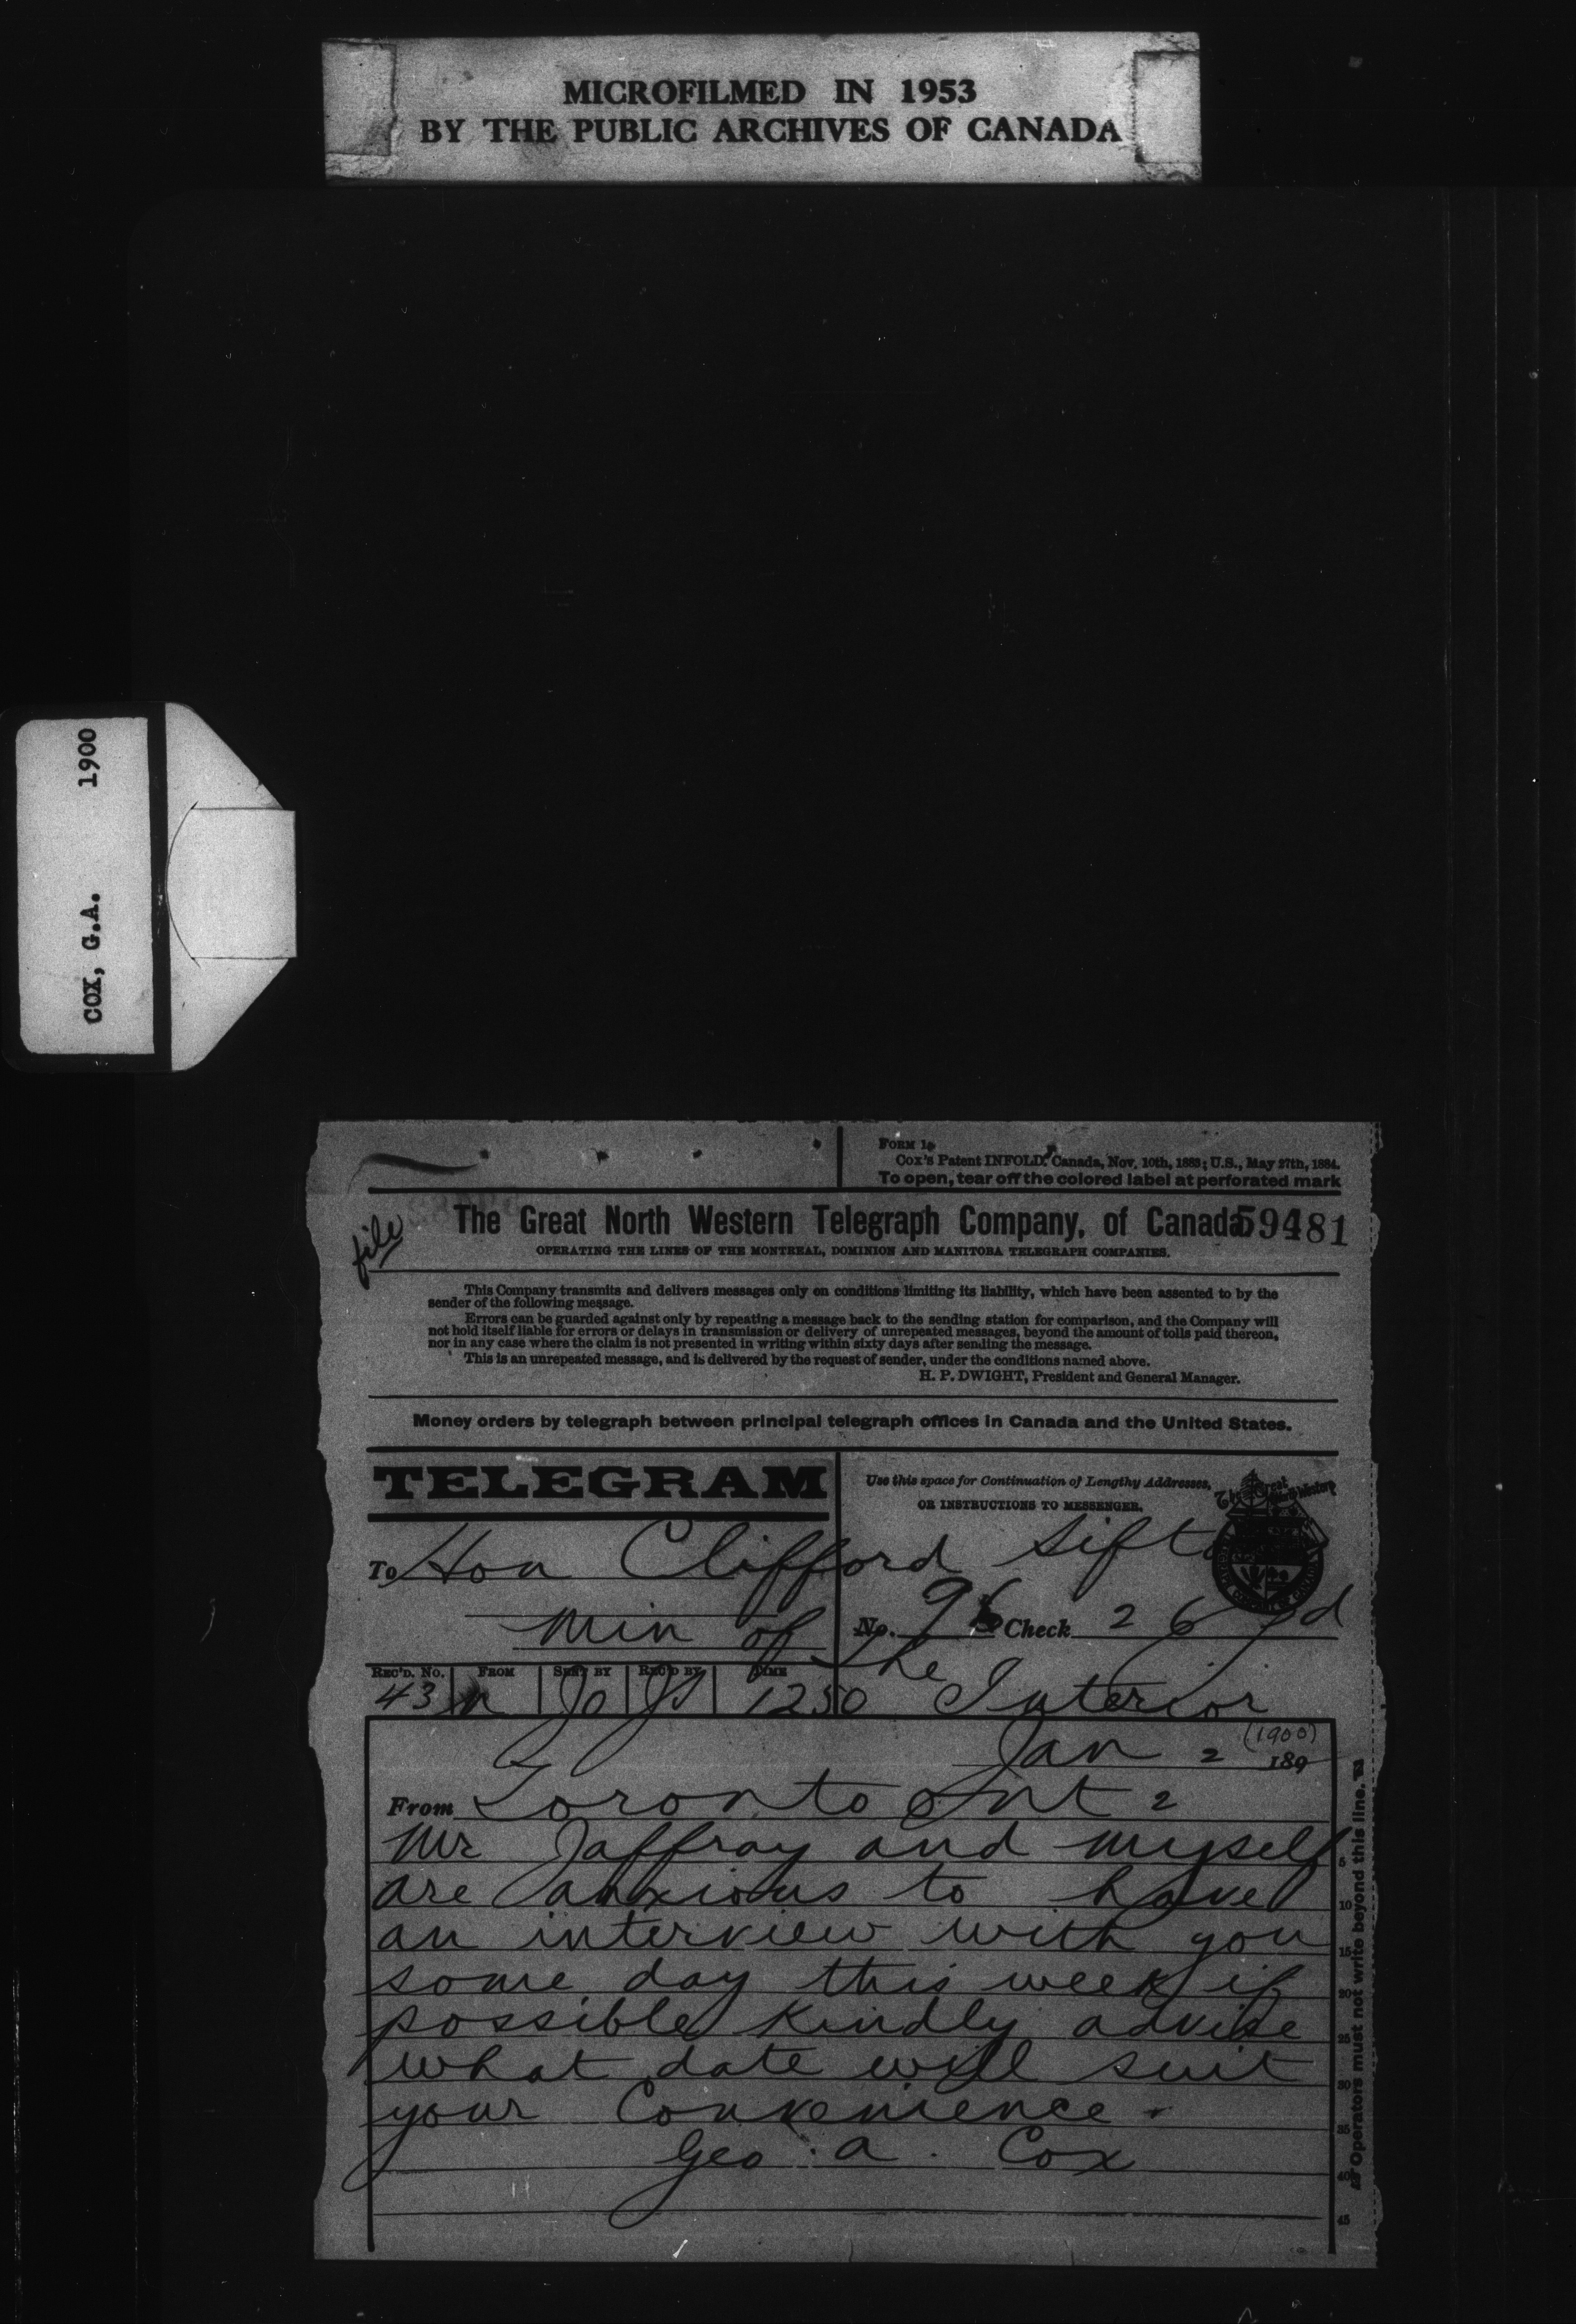 MICROFILMED IN 1953
BY THE PUBLIC ARCHIVES OF CANADA
COX, G.A. 1900
FORM 1.
Cox's Patent INFOLD. Canada, Nov. 10th, 1883; U.S., May 27th, 1884.
To open, tear off the colored label at perforated mark
file
The Great North Western Telegraph Company, of Canada 59481
OPERATING THE LINES OF THE MONTREAL, DOMINION AND MANITOBA TELEGRAPH COMPANIES.
This Company transmits and delivers messages only on conditions limiting its liability, which have been assented to by the
sender of the following message.
Errors can be guarded against only by repeating a message back to the sending station for comparison, and the Company will
not hold itself liable for errors or delays in transmission or delivery of unrepeated messages, beyond the amount of tolls paid thereon,
nor in any case where the claim is not presented in writing within sixty days after sending the message.
This is an unrepeated message, and is delivered by the request of sender, under the conditions named above.
H. P. DWIGHT, President and General Manager.
Money orders by telegraph between principal telegraph offices in Canada and the United States.
TELEGRAM
Use this space for Continuation of Lengthy Addresses,
OR INSTRUCTIONS TO MESSENGER.
The Great North Western
To Hon Clifford Sifto
Min of the
No. 96 Check 26 pd
REC'D. No. FROM SENT BY REC'D BY TIME
43 n Jo Js 1250 Interior
Jan 2 189 (1900)
From Toronto Ont 2
Mr Jaffray and myself
are anxious to have
an interview with you
some day this week if
possible Kindly advise
what date will suit
your Convenience.
Geo. A. Cox
5
10
15
20
25
30
35
40
45
Operators must not write beyond this line.